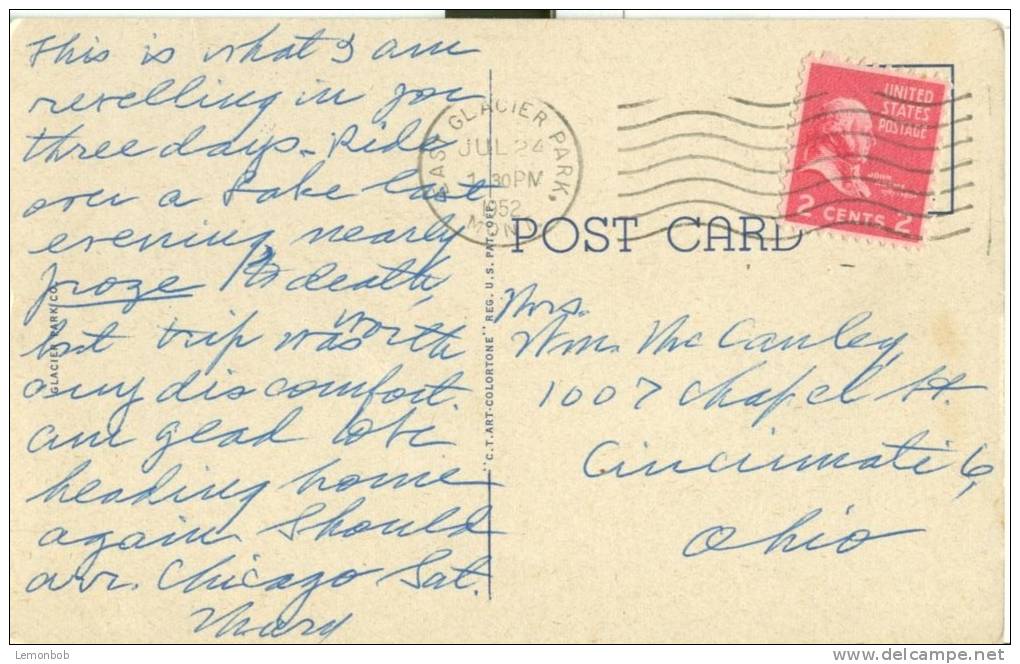 This is what I am
revelling in for
three days. Ride
over a Lake last
evening nearly
froze to death,
but trip was worth
any discomfort.
am glad to be
heading home
again. Should
arr. Chicago Sat.
Mary
GLACIER PARK CO.
"C.T. ART-COLORTONE" REG. U.S. PAT. OFF.
EAST GLACIER PARK,
JUL 24
1 30 PM
1952
MONT
UNITED
STATES
POSTAGE
JOHN
2 CENTS 2
POST CARD
Mrs.
Wm. McCauley
1007 Chapel St.
Cincinnati 6,
Ohio
Lemonbob
delcampe.net